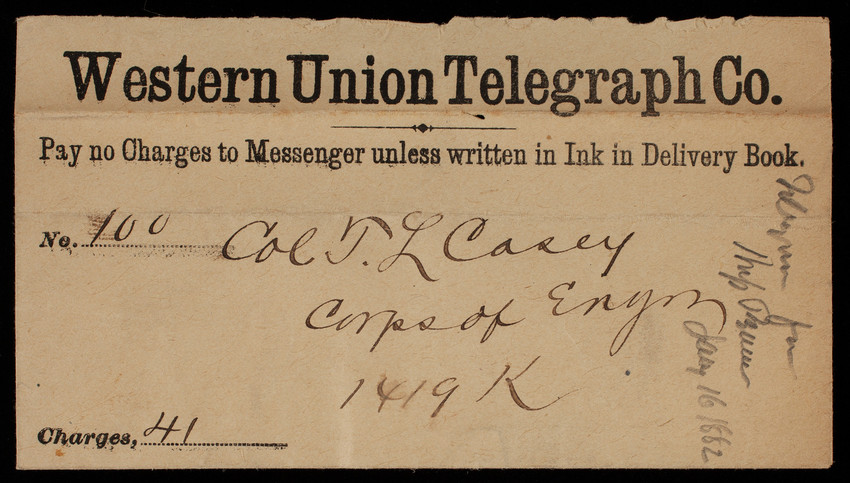 Western Union Telegraph Co.
Pay no Charges to Messenger unless written in Ink in Delivery Book.
No. 100
Col T. L Casey
Corps of Engrs
1419 K
Charges, 41
Jany 16 1882